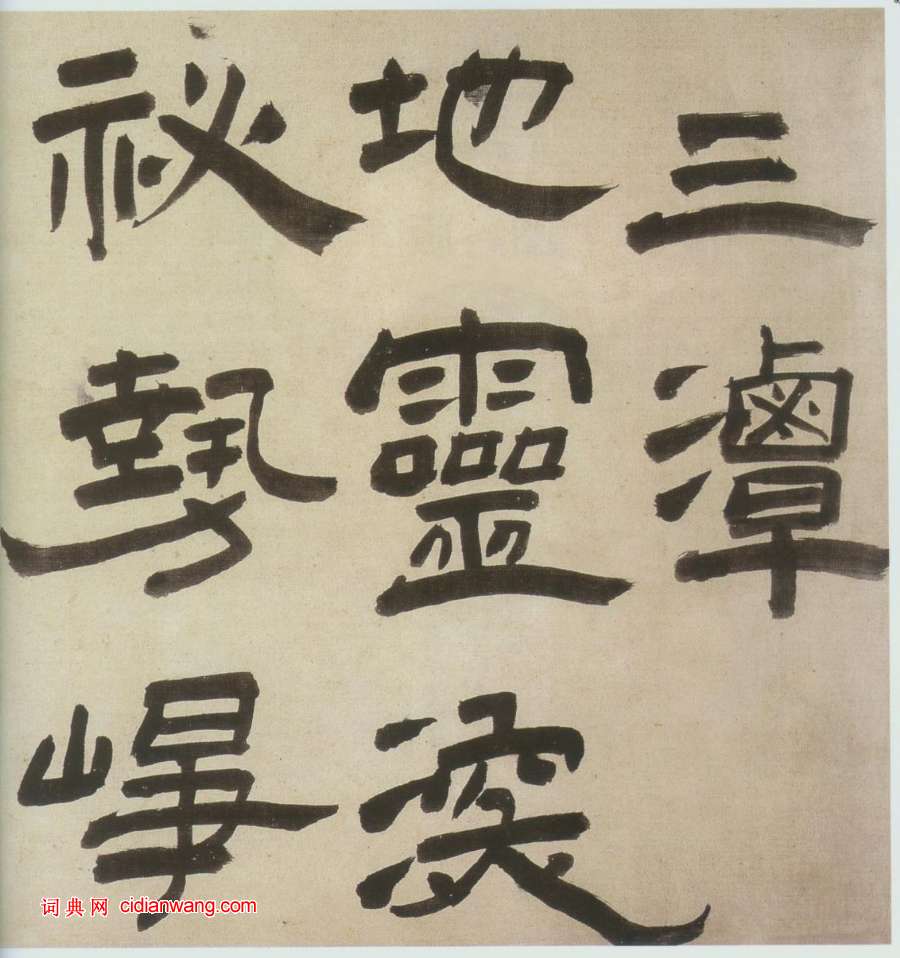 三潭
地靈渙
祕勢
词典网 cidianwang.com